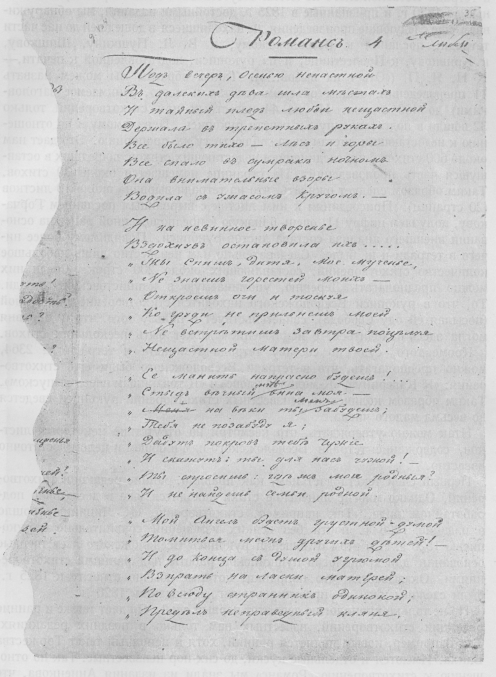 Романсъ. 4
Подъ вечеръ, осенью ненастной
Въ далекихъ дѣва шла мѣстахъ
И тайный плодъ любви нещастной
Держала въ трепетныхъ рукахъ.
Все было тихо — лѣсъ и горы
Все спало въ сумракѣ ночномъ
Она внимательные взоры
Водила съ ужасомъ кругомъ. —
И на невинное творенье
Вздохнувъ остановила ихъ.....
„Ты спишь, дитя, мое мученье,
„Не знаешь горестей моихъ —
„Откроешь очи и тоскуя
„Ко груди не прильнешь моей
„Не встрѣтишь завтра поцѣлуя
„Нещастной матери твоей.
„Ее манить напрасно будешь!...
„Стыдъ вѣчный вина моя —
„Меня на вѣки ты забудешь;
„Тебя не позабуду я;
„Дадутъ покровъ тебѣ чужіе
„И скажутъ: ты для насъ чужой! —
„Ты спросишь: гдѣ жъ мои родные?
„И не найдешь семьи родной.
„Мой Ангелъ будетъ грустной думой
„Томиться межъ другихъ дѣтей! —
„И до конца съ душой угрюмой
„Взирать на ласки матерей;
„Повсюду странникъ одинокой;
„Предѣлъ неправедный кляня.